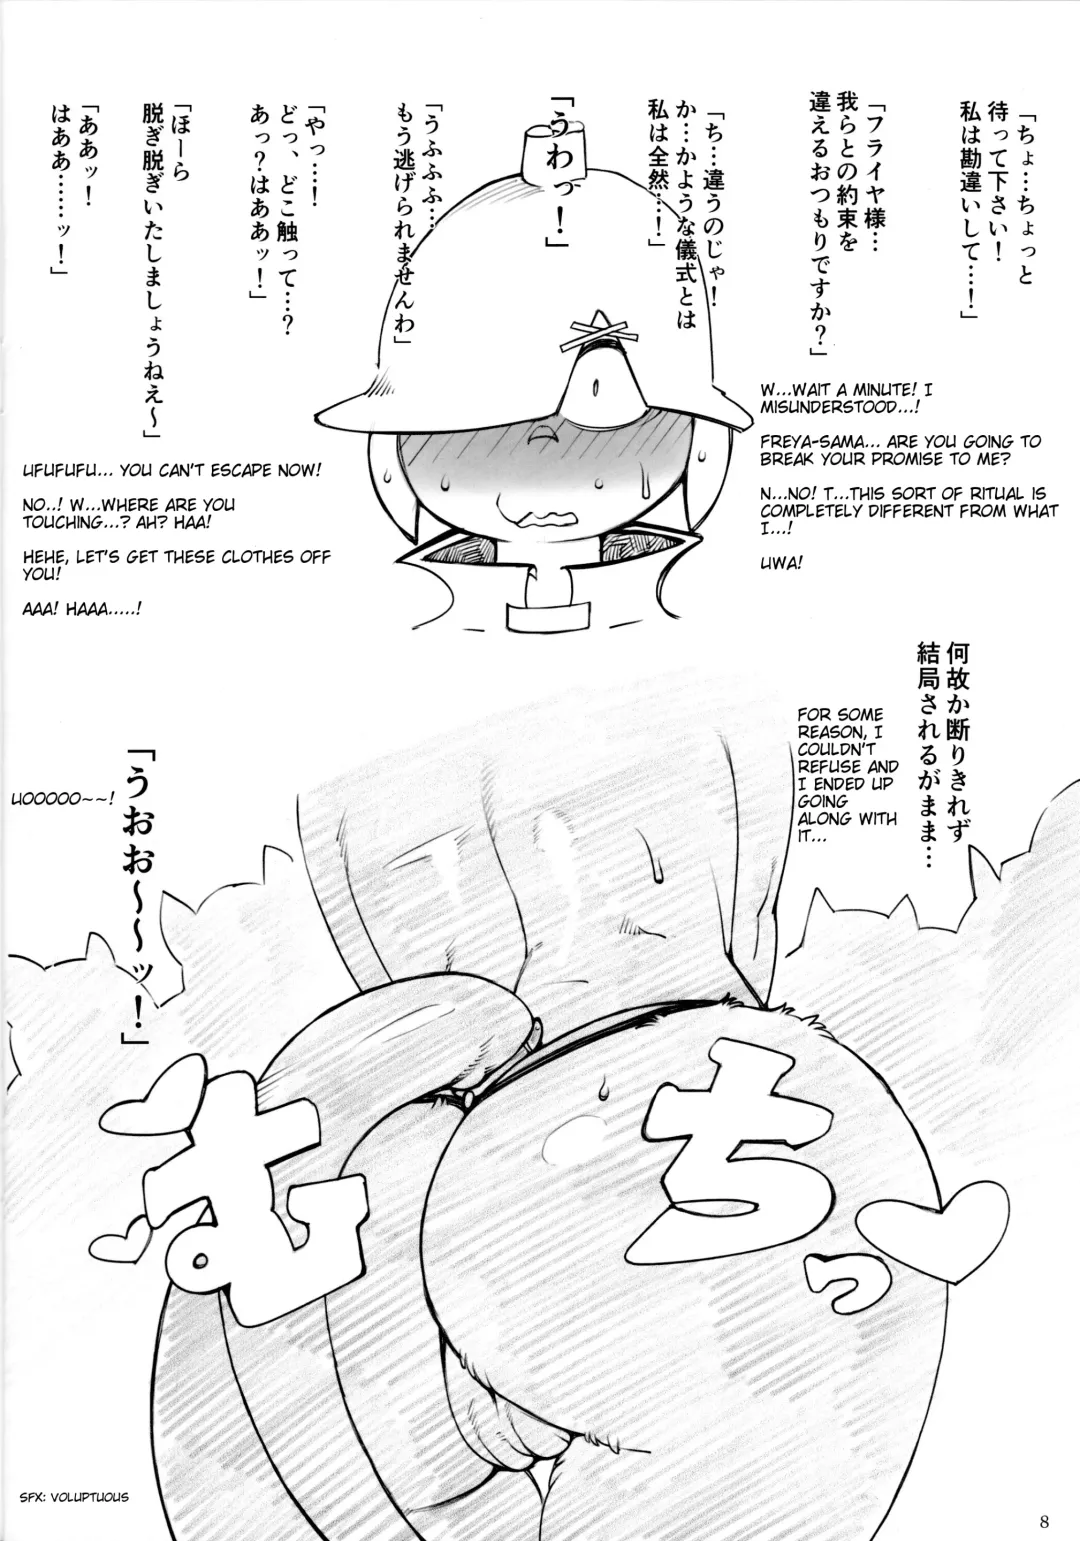 「ちょ…ちょっと
待って下さい！
私は勘違いして…！」
「フライヤ様…
我らとの約束を
違えるおつもりですか？」
「ち…違うのじゃ！
か…かような儀式とは
私は全然…！」
「うわっ！」
「うふふふ…
もう逃げられませんわ」
「やっ…！
どっ、どこ触って…？
あっ？はああッ！」
「ほーら
脱ぎ脱ぎいたしましょうねえ〜」
「ああッ！
はああ……ッ！」
W...WAIT A MINUTE! I
MISUNDERSTOOD...!
FREYA-SAMA... ARE YOU GOING TO
BREAK YOUR PROMISE TO ME?
N...NO! T...THIS SORT OF RITUAL IS
COMPLETELY DIFFERENT FROM WHAT
I...!
UWA!
UFUFUFU... YOU CAN'T ESCAPE NOW!
NO..! W...WHERE ARE YOU
TOUCHING...? AH? HAA!
HEHE, LET'S GET THESE CLOTHES OFF
YOU!
AAA! HAAA.....!
何故か断りきれず
結局されるがまま…
FOR SOME
REASON, I
COULDN'T
REFUSE AND
I ENDED UP
GOING
ALONG WITH
IT...
「うおお〜〜ッ！」
UOOOOO~~!
むちっ
SFX: VOLUPTUOUS
8